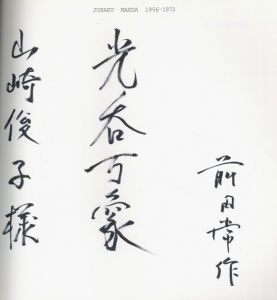 JOSAKU MAEDA 1956-1972
山崎俊子様
光呑万象
前田常作